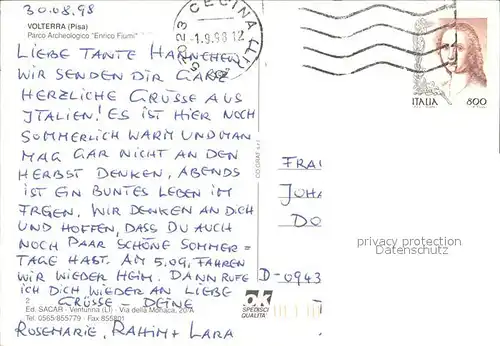 30.08.98
VOLTERRA (Pisa)
Parco Archeologico "Enrico Fiumi"
LIEBE TANTE HANNCHEN
WIR SENDEN DIR GANZ
HERZLICHE GRÜSSE AUS
ITALIEN! ES IST HIER NOCH
SOMMERLICH WARM UND MAN
MAG GAR NICHT AN DEN
HERBST DENKEN, ABENDS
IST EIN BUNTES LEBEN IM
FREIEN. WIR DENKEN AN DICH
UND HOFFEN, DASS DU AUCH
NOCH PAAR SCHÖNE SOMMER=
TAGE HAST. AM 5.09. FAHREN
WIR WIEDER HEIM. DANN RUFE
ICH DICH WIEDER AN LIEBE
GRÜSSE - DEINE
ROSEMARIE, RAHIM + LARA
2
Ed. SACAR - Venturina (LI) - Via della Monaca, 20/A
Tel. 0565/855779 - Fax 855801
CECINA (LI)
-1.9.98 12
57023
ITALIA 800
CO.GRAF s.r.l.
FRAU
JOHA
DO
D-0943
ok
SPEDISCI
QUALITA'
privacy protection
watermark